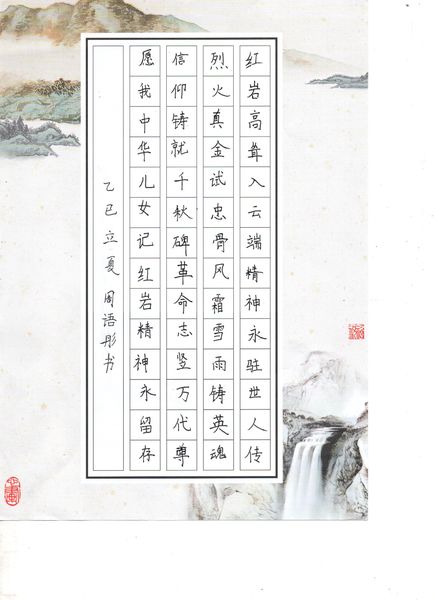 红岩高耸入云端精神永驻世人传
烈火真金试忠骨风霜雪雨铸英魂
信仰铸就千秋碑革命志竖万代尊
愿我中华儿女记红岩精神永留存
乙巳立夏 周语彤书